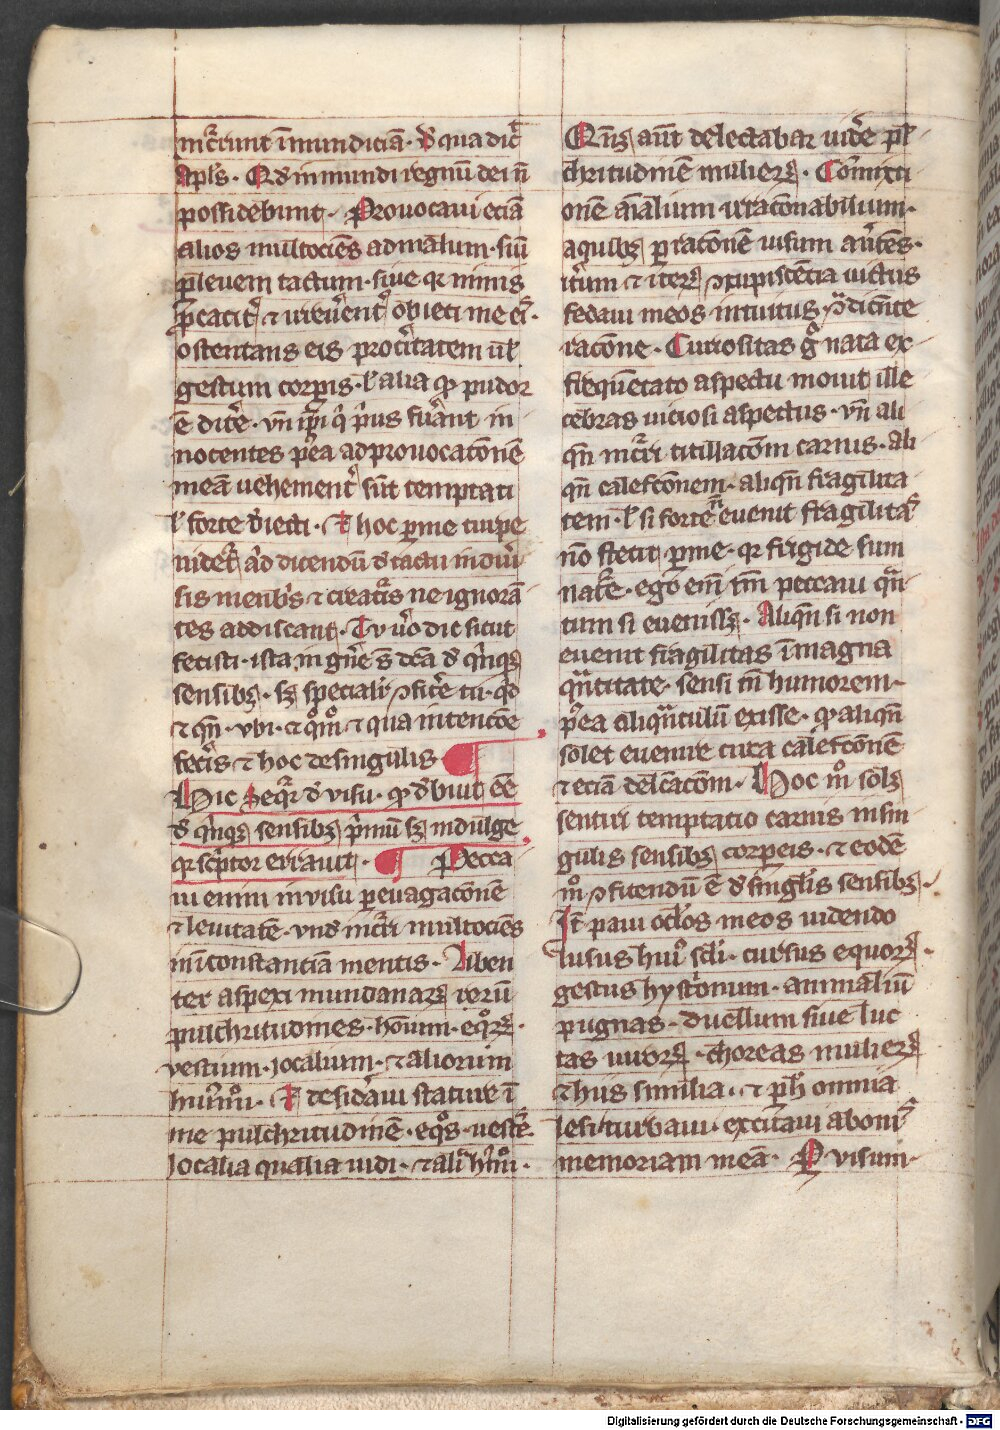 incurrunt īmundiciā · de qua dicit
apls · Qd inmundi regnū dei n̄
possidebunt · Prouocaui eciā
alios multociēs ad malum · siue
p leuem tactum · siue qr nimis
et irreuerent obieci me eis ·
ostentans eis proceritatem ul
gestum corpis · l alia q pudor
ē dicere · vn ipi q prius fuerant in
nocentes ppea ad prouocacōnē
meā uehement sūt temptati
l forte deiecti · Et hoc p me turpe
uideret ad dicendū de tactu in diuer
sis menbris et creatis ne ignorā
tes addiscant · Tu uero dic sicut
fecisti · ista in gnere st dcā de quinqz
sensibz · sz specialit ꝯfitere tu · qd
et qn · vbi · et quomo et qua intencōe
feceris et hoc de singulis
Hic sequitur de visu · q debuit eē
de quinqz sensibz primū sz indulge
qr scriptor errauit · Pecca
ui enim in visu p euagacōnē
et leuitatē · vnde incurri multociēs
incōstanciam mentis · Liben
ter aspexi mundanarum rerū
pulchritudines · hoīum · equorum ·
vestium · iocalium · et aliorum
huiusmodi · Et desideraui stature ī
me pulchritudinē · equos · uestes ·
Iocalia qualia uidi · et alia hmoi ·
Qnqz aūt delectabar uidere pul
chritudinē mulierum · Cōmixti
onē aīalium irracōnabilium ·
a quibz p racōnem uisum auertens ·
iterum et iterum ꝯcupiscēcia uictus
fedaui meos intuitus ꝯtradicente
racōne · Curiositas gᵒ nata ex
frequētato aspectu mouit ille
cebras uiciosi aspectus · vn ali
qn incurri titillacōm carnis · ali
qn calefcōnem · aliqn fragilita
tem · l si forte n euenit fragilitas
nō stetit p me · qr frigide sum
nature · ego enī tm̄ peccaui quā
tum si euenissz · Aliqn si non
euenit fragilitas ī magna
quātitate · sensi tn̄ humorem ·
ppea aliquātulū exisse · q aliqn
solet euenire circa calefcōnē
et eciā delcacōm · Hoc mo solz
sentiri temptacio carnis in sin
gulis sensibz corpeis · et eodē
mo ꝯfitendū ē de singulis sensibz ·
It paui oclos meos uidendo
lusus huius scli · cursus equorum ·
gestus hystrionum · animaliū
pugnas · duellum siue luc
tas uirorum · choreas mulierum
et hiis similia · et p h omnia
lesi · turbaui · excecaui a boni
memoriam meā · P visum ·
Digitalisierung gefördert durch die Deutsche Forschungsgemeinschaft · DFG